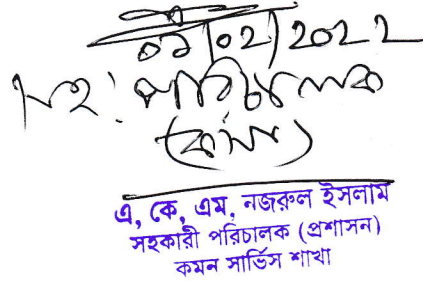 ০১/০২/2022
সহ: পরিচালক
(কাসা)
এ, কে, এম, নজরুল ইসলাম
সহকারী পরিচালক (প্রশাসন)
কমন সার্ভিস শাখা